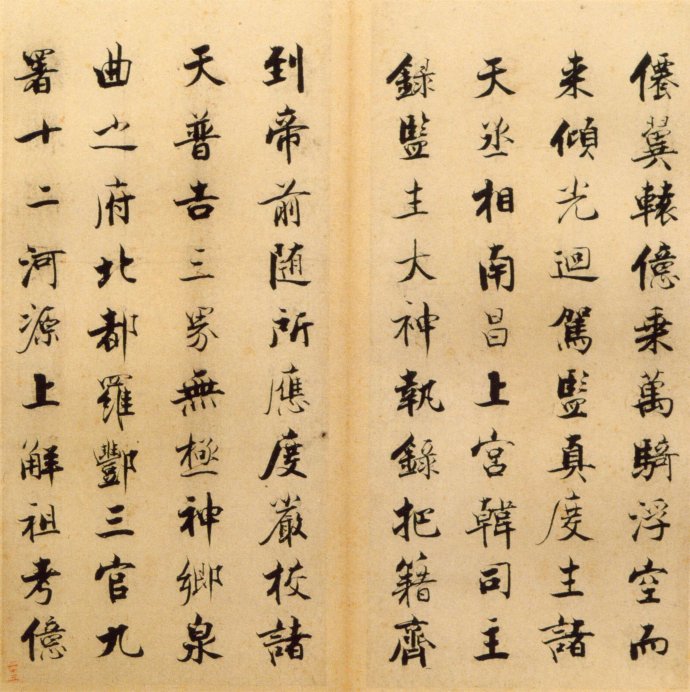 僊翼轅億乗萬騎浮空而
来傾光迴駕監真度生諸
天丞相南昌上宮韓司主
錄監生大神執錄把籍齊
到帝前随所應度嚴校諸
天普告三界無極神鄉泉
曲之府北都羅酆三官九
署十二河源上解祖考億